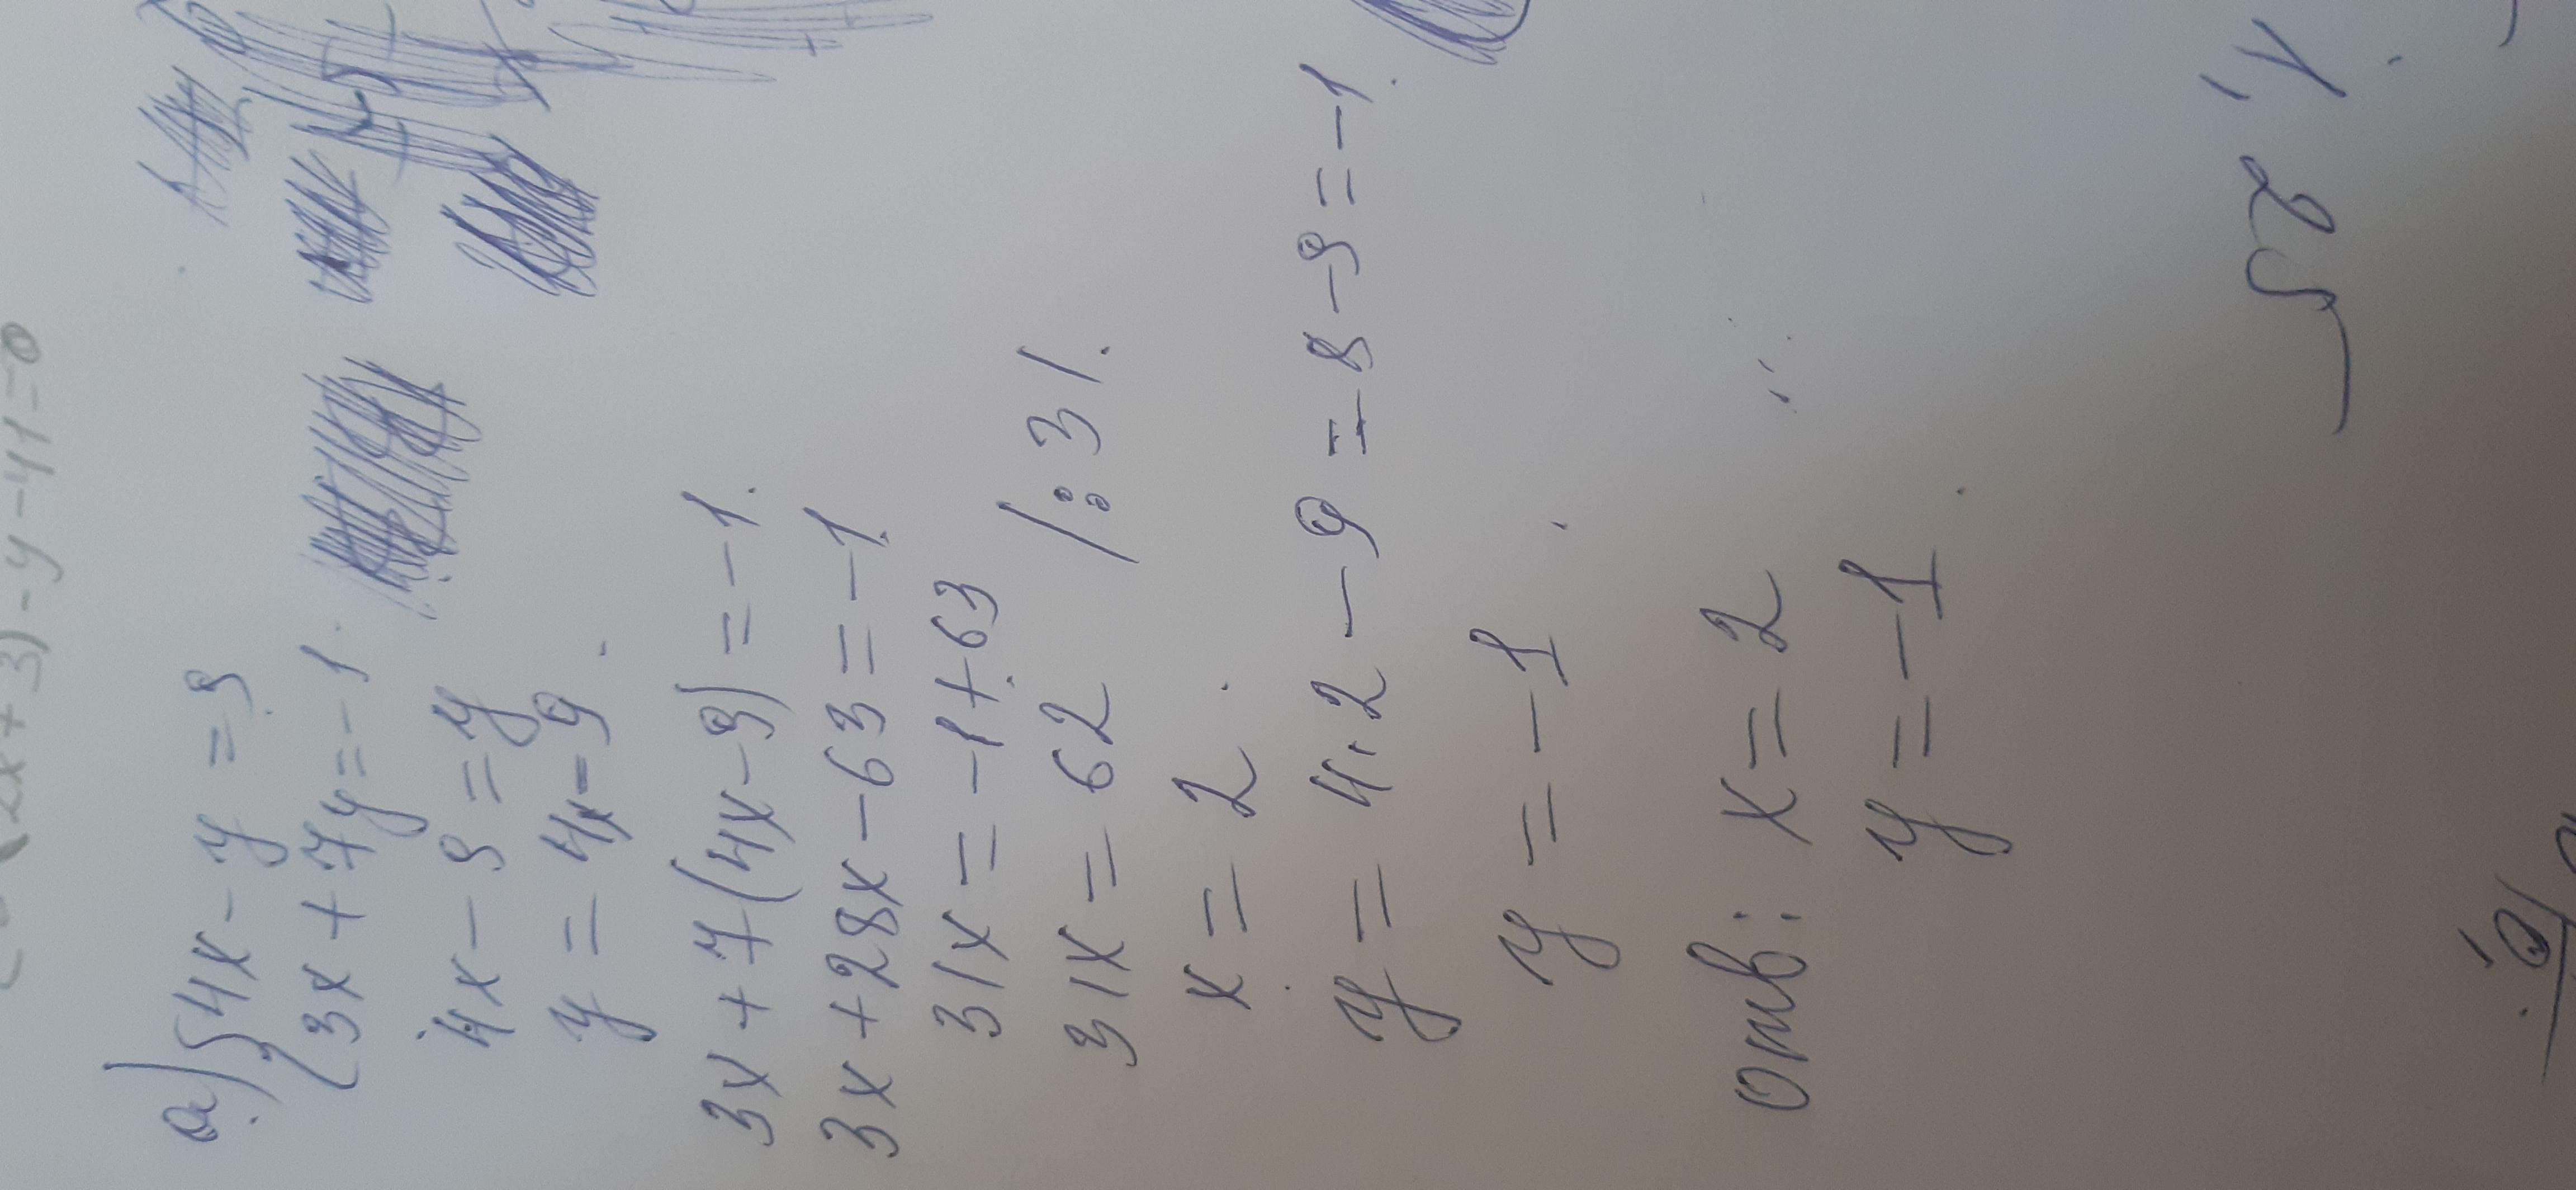 2x+3)-y-41=0
а) {4x-y=9
{3x+7y=-1.
4x-9=y
y=4x-9.
3x+7(4x-9)=-1.
3x+28x-63=-1.
31x=-1+63
31x=62 /:31.
x=2.
y=4·2-9=8-9=-1.
y=-1.
отв: x=2
y=-1.